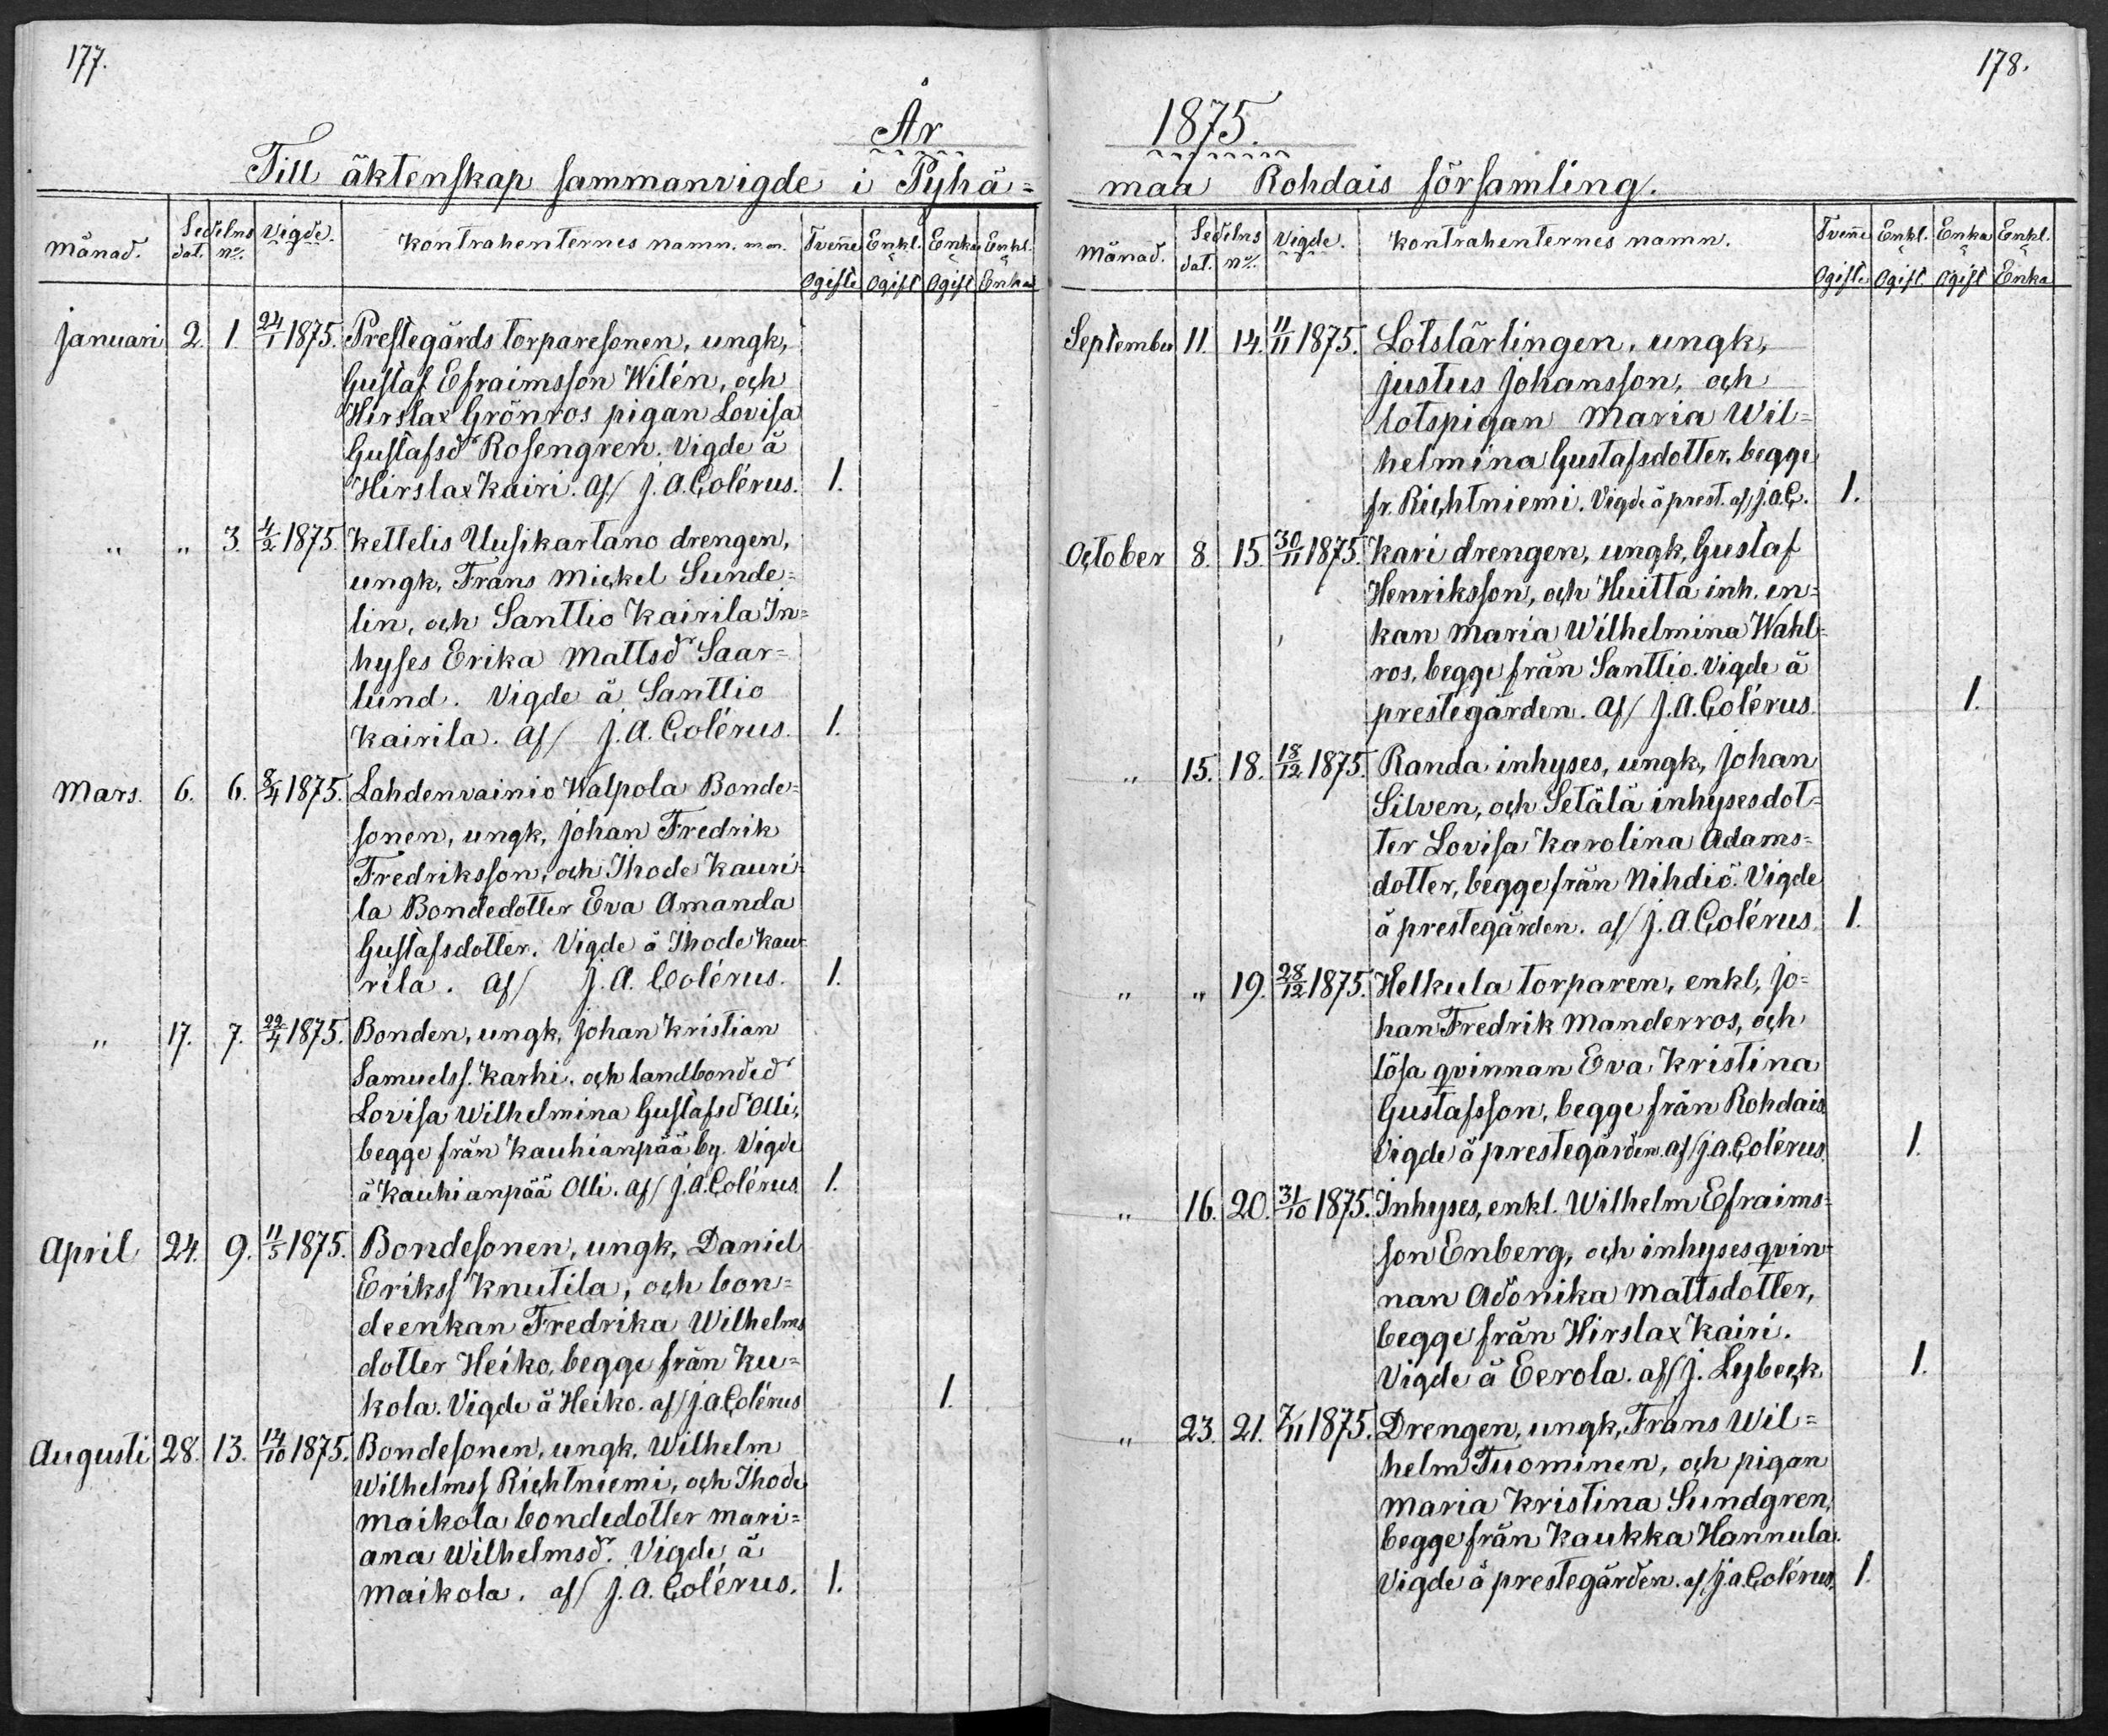 177.
År
Till äktenskap sammanvigde i Pyhä=
Månad. Sedelns dat. No. Vigde. Kontrahenternes namn. m.m. Tvenne Ogifte Enkl. o Ogift Enka o Ogift Enkl. o Enka
Januari 2. 1. 24/1 1875. Prestegårds torparesonen, ungk,
Gustaf Efraimsson Wilén, och
Hirslax Grönros pigan Lovisa
Gustafsdr Rosengren. Vigde å
Hirslax Kairi. af/ J. A. Colérus. 1.
" " 3. 4/2 1875. Kettelis Uusikartano drengen,
ungk, Frans Mickel Sunde=
lin, och Santtio Kairila In=
hyses Erika Mattsdr Saar=
lund. Vigde å Santtio
Kairila. af/ J. A. Colérus. 1.
Mars. 6. 6. 8/4 1875. Lahdenvainio Walpola Bonde=
sonen, ungk, Johan Fredrik
Fredriksson, och Ihode Kauri=
la Bondedotter Eva Amanda
Gustafsdotter. Vigde å Ihode Kau=
rila. af/ J. A. Colérus. 1.
" 17. 7. 22/4 1875. Bonden, ungk, Johan Kristian
Samuelss. Karhi, och landbondedr
Lovisa Wilhelmina Gustafsdr Olli,
begge från Kauhianpää by. Vigde
å Kauhianpää Olli. af/ J. A. Colérus. 1.
April 24. 9. 11/5 1875. Bondesonen, ungk, Daniel
Erikss Knutila, och bon=
deenkan Fredrika Wilhelms
dotter Heiko, begge från Ku=
kola. Vigde å Heiko. af/ J. A. Colérus 1.
Augusti 28. 13. 14/10 1875. Bondesonen, ungk, Wilhelm
Wilhelmss Richtniemi, och Ihode
Maikola bondedotter Mari=
ana Wilhelmsdr. Vigde å
Maikola. af/ J. A. Colérus. 1.
178.
1875.
maa Rohdais församling.
Månad. Sedelns dat. No. Vigde. Kontrahenternes namn. Tvenne Ogifte Enkl. o Ogift. Enka o Ogift Enkl. o Enka
September 11. 14. 11/11 1875. Lotslärlingen, ungk,
Justus Johansson, och
lotspigan Maria Wil=
helmina Gustafsdotter, begge
fr. Richtniemi. Vigde å prest. af/ J. A. C. 1.
October 8. 15. 30/11 1875. Kari drengen, ungk, Gustaf
Henriksson, och Huitta inh. en=
kan Maria Wilhelmina Wahl=
ros, begge från Santtio. Vigde å
prestegården. af/ J. A. Colérus. 1.
" 15. 18. 18/12 1875. Randa inhyses, ungk, Johan
Silven, och Setälä inhysesdot=
ter Lovisa Karolina Adams=
dotter, begge från Nihdiö. Vigde
å prestegården. af/ J. A. Colérus. 1.
" " 19. 28/12 1875. Helkula torparen, enkl, Jo=
han Fredrik Manderros, och
lösa qvinnan Eva Kristina
Gustafsson, begge från Rohdais.
Vigde å prestegården. af/ J. A. Colérus. 1.
" 16. 20. 31/10 1875. Inhyses, enkl. Wilhelm Efraims=
son Enberg, och inhysesqvin=
nan Adonika Mattsdotter,
begge från Hirslax Kairi.
Vigde å Eerola. af/ J. Lybeck. 1.
" 23. 21. 7/11 1875. Drengen, ungk, Frans Wil=
helm Tuominen, och pigan
Maria Kristina Sundgren,
begge från Kaukka Hannula.
Vigde å prestegården. af/ J. A. Colérus. 1.